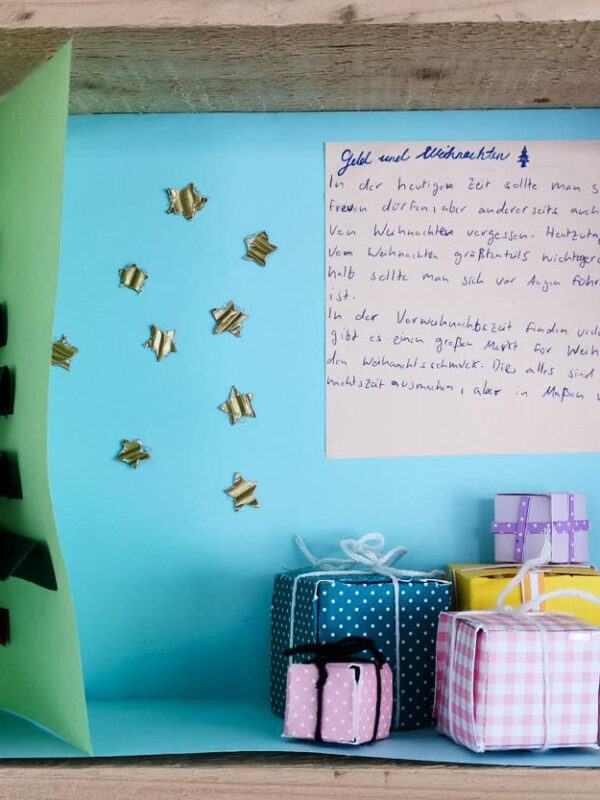 Geld und Weihnachten
In der heutigen Zeit sollte man s
freuen dürfen, aber andererseits auch
von Weihnachten vergessen. Heutzutag
vom Weihnachten größtenteils wichtiger
halb sollte man sich vor Augen führ
ist.
In der Vorweihnachtszeit finden viel
gibt es einen großen Markt for Weih
den Weihnachtsschmuck. Dies alles sind
nachtszeit ausmachen, aber in Maßen